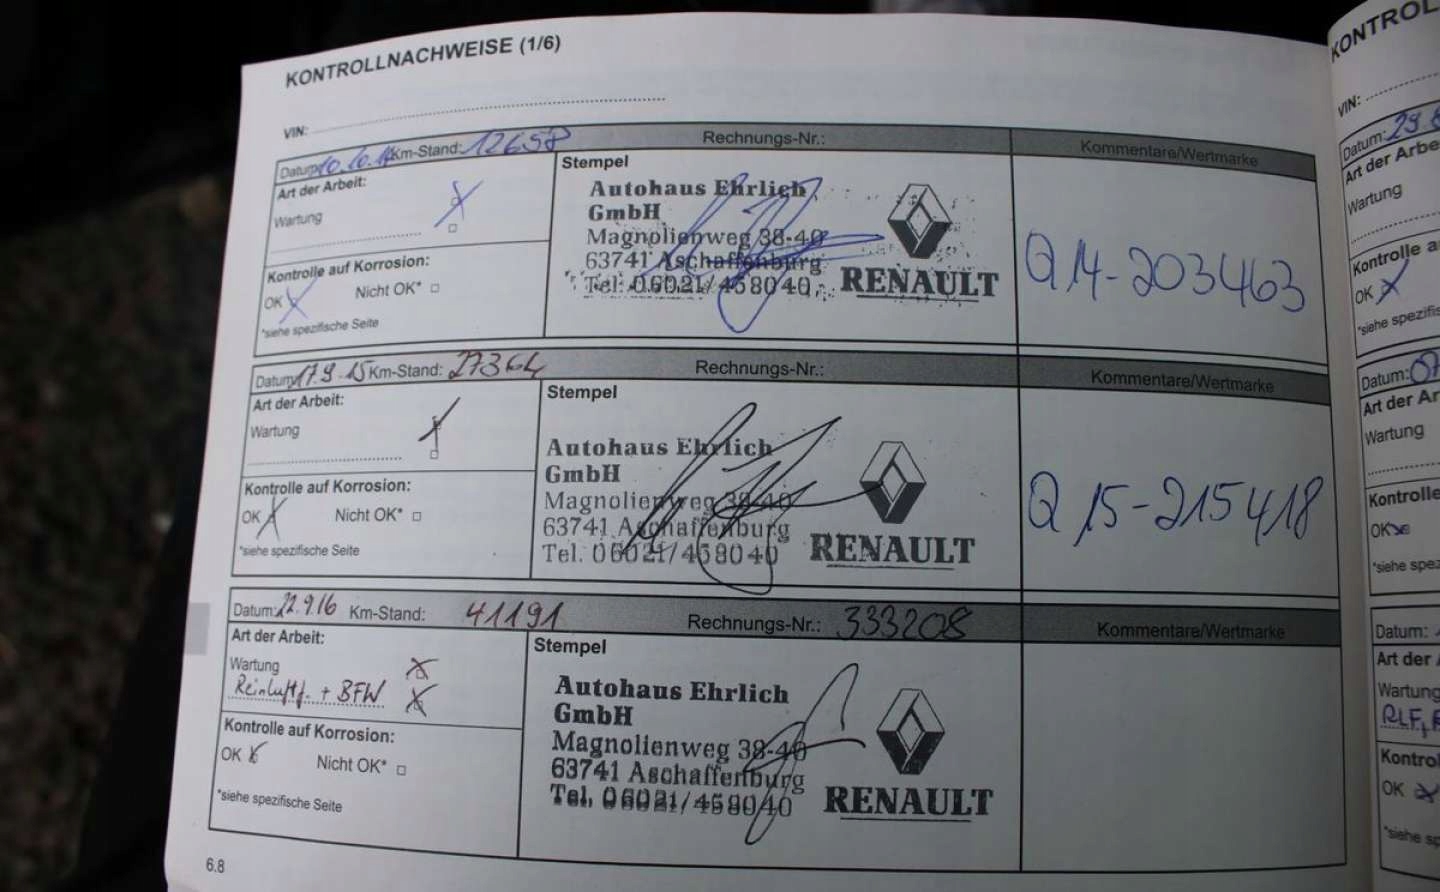 KONTROLLNACHWEISE (1/6)
VIN:
Datum: 10.10.14 Km-Stand: 12658 Rechnungs-Nr.: Kommentare/Wertmarke
Art der Arbeit:
Wartung
Kontrolle auf Korrosion:
OK Nicht OK*
*siehe spezifische Seite
Stempel
Autohaus Ehrlich
GmbH
Magnolienweg 38-40
63741 Aschaffenburg
Tel. 06021/458040
RENAULT
Q 14-203463
Datum: 17.9.15 Km-Stand: 27364 Rechnungs-Nr.: Kommentare/Wertmarke
Art der Arbeit:
Wartung
Kontrolle auf Korrosion:
OK Nicht OK*
*siehe spezifische Seite
Stempel
Autohaus Ehrlich
GmbH
Magnolienweg 38-40
63741 Aschaffenburg
Tel. 06021/458040
RENAULT
Q 15-215418
Datum: 22.9.16 Km-Stand: 41191 Rechnungs-Nr.: 333208 Kommentare/Wertmarke
Art der Arbeit:
Wartung
Reinluftf. + BFW
Kontrolle auf Korrosion:
OK Nicht OK*
*siehe spezifische Seite
Stempel
Autohaus Ehrlich
GmbH
Magnolienweg 38-40
63741 Aschaffenburg
Tel. 06021/458040
RENAULT
6.8
KONTROL
VIN:
Datum: 29.
Art der Arbe
Wartung
Kontrolle a
OK
*siehe spezifis
Datum: 07
Art der Ar
Wartung
Kontrolle
OK
*siehe spez
Datum:
Art der
Wartung
RLF,
Kontrol
OK
*siehe sp